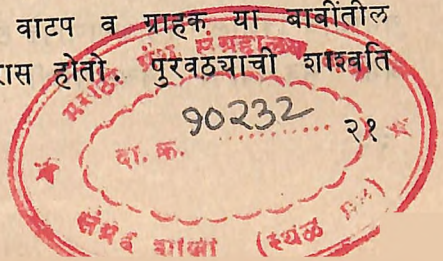 वाटप व ग्राहक या बाबींतील
रास होतो. पुरवठ्याची शाश्वति
मराठी ग्रंथ संग्रहालय
दा. क्र. 90232
२१
संग्रह शाखा (स्थळ